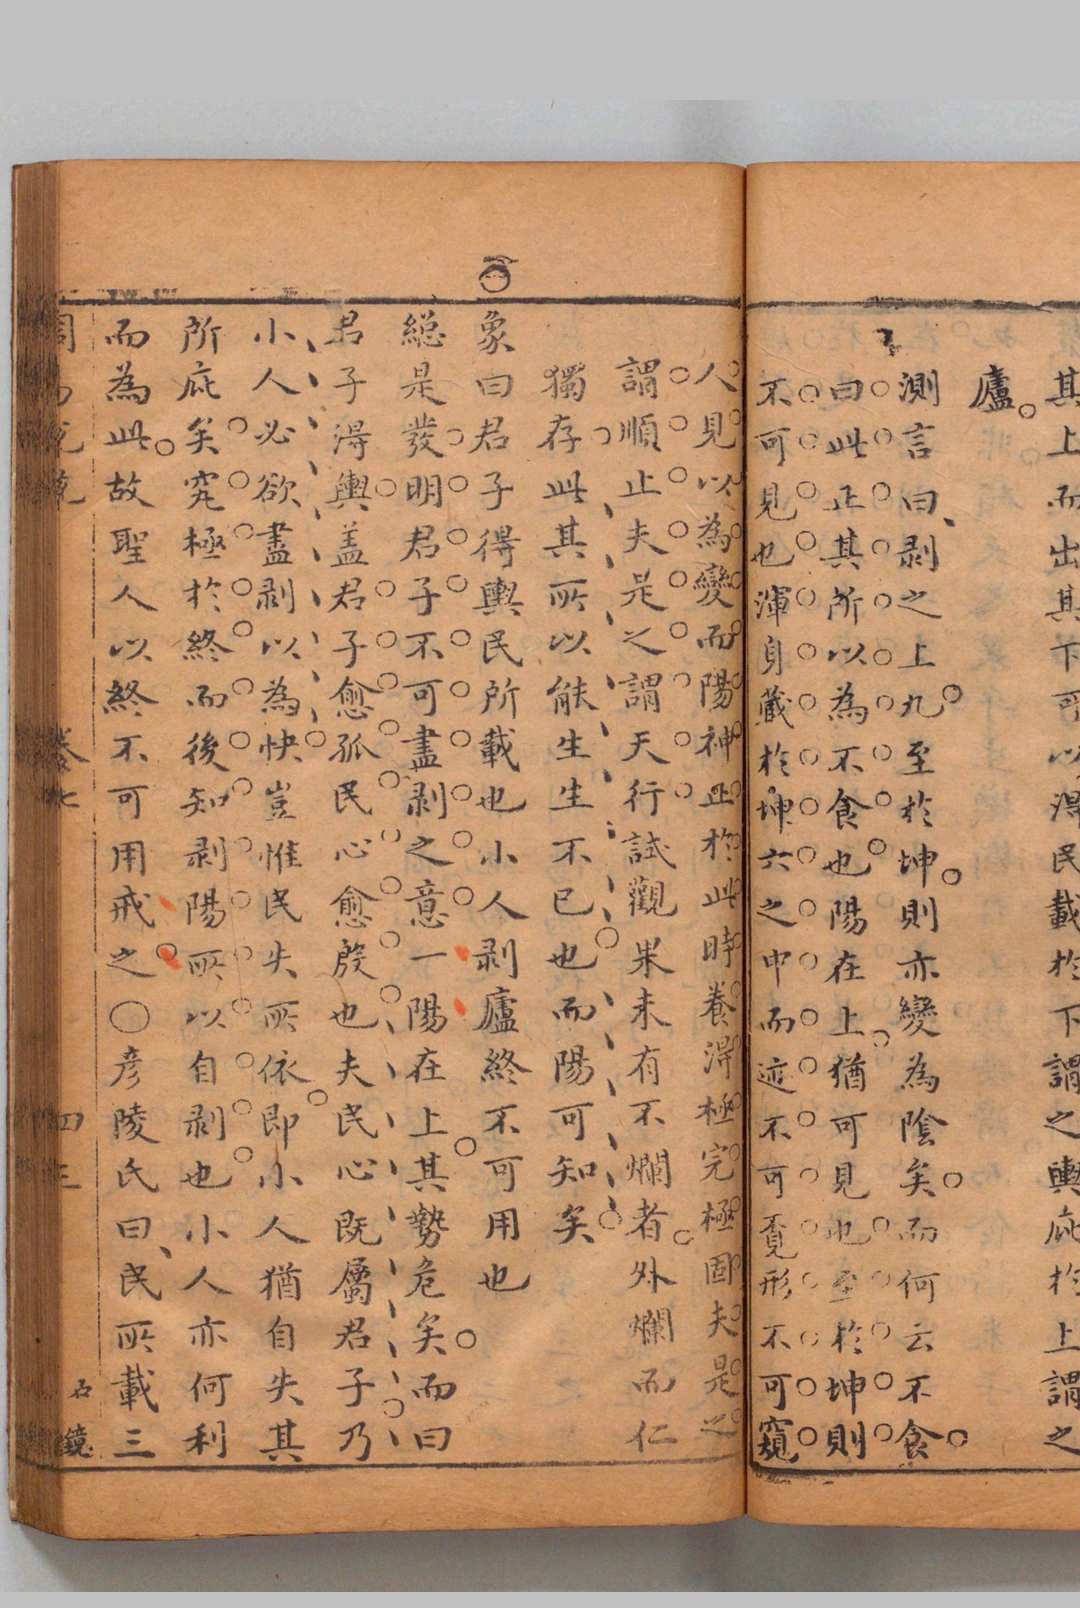 其上而出其下所以得民載於下謂之輿庇於上謂之
廬
測言曰剥之上九至於坤則亦變為陰矣而何云不食
曰此正其所以為不食也陽在上猶可見也至於坤則
不可見也渾身藏於坤六之中而迹不可覔形不可窺
人見以為變而陽神止於此時養得極完極固夫是之
謂順止夫是之謂天行試觀果未有不爛者外爛而仁
獨存此其所以能生生不已也而陽可知矣
象曰君子得輿民所載也小人剥廬終不可用也
總是發明君子不可盡剥之意一陽在上其勢危矣而曰
君子得輿盖君子愈孤民心愈殷也夫民心既屬君子乃
小人必欲盡剥以為快豈惟民失所依即小人猶自失其
所庇矣究極於終而後知剥陽所以自剥也小人亦何利
而為此故聖人以終不可用戒之〇彦陵氏曰民所載三
周易 卷七 四三 石鏡